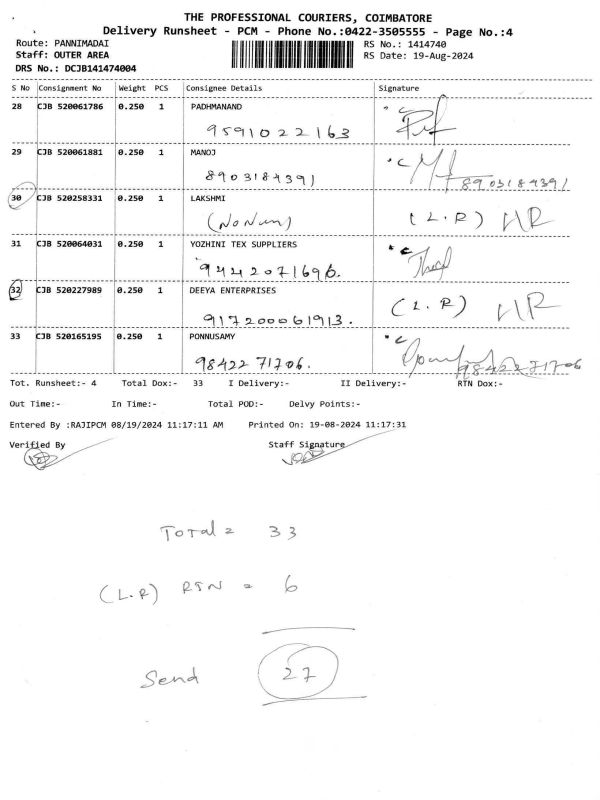 THE PROFESSIONAL COURIERS, COIMBATORE
Delivery Runsheet - PCM - Phone No.:0422-3505555 - Page No.:4
Route: PANNIMADAI RS No.: 1414740
Staff: OUTER AREA RS Date: 19-Aug-2024
DRS No.: DCJB141474004
S No Consignment No Weight PCS Consignee Details Signature
28 CJB 520061786 0.250 1 PADHMANAND
9591022163
29 CJB 520061881 0.250 1 MANOJ
8903184391 8903184391
30 CJB 520258331 0.250 1 LAKSHMI
(NoNum) (L.R) HR
31 CJB 520064031 0.250 1 YOZHINI TEX SUPPLIERS
9442071696.
32 CJB 520227989 0.250 1 DEEYA ENTERPRISES
917200061913. (L.R) HR
33 CJB 520165195 0.250 1 PONNUSAMY
98422 71706. 9842271706
Tot. Runsheet:- 4 Total Dox:- 33 I Delivery:- II Delivery:- RTN Dox:-
Out Time:- In Time:- Total POD:- Delvy Points:-
Entered By :RAJIPCM 08/19/2024 11:17:11 AM Printed On: 19-08-2024 11:17:31
Verified By Staff Signature
Total = 33
(L.R) RTN = 6
Send 27